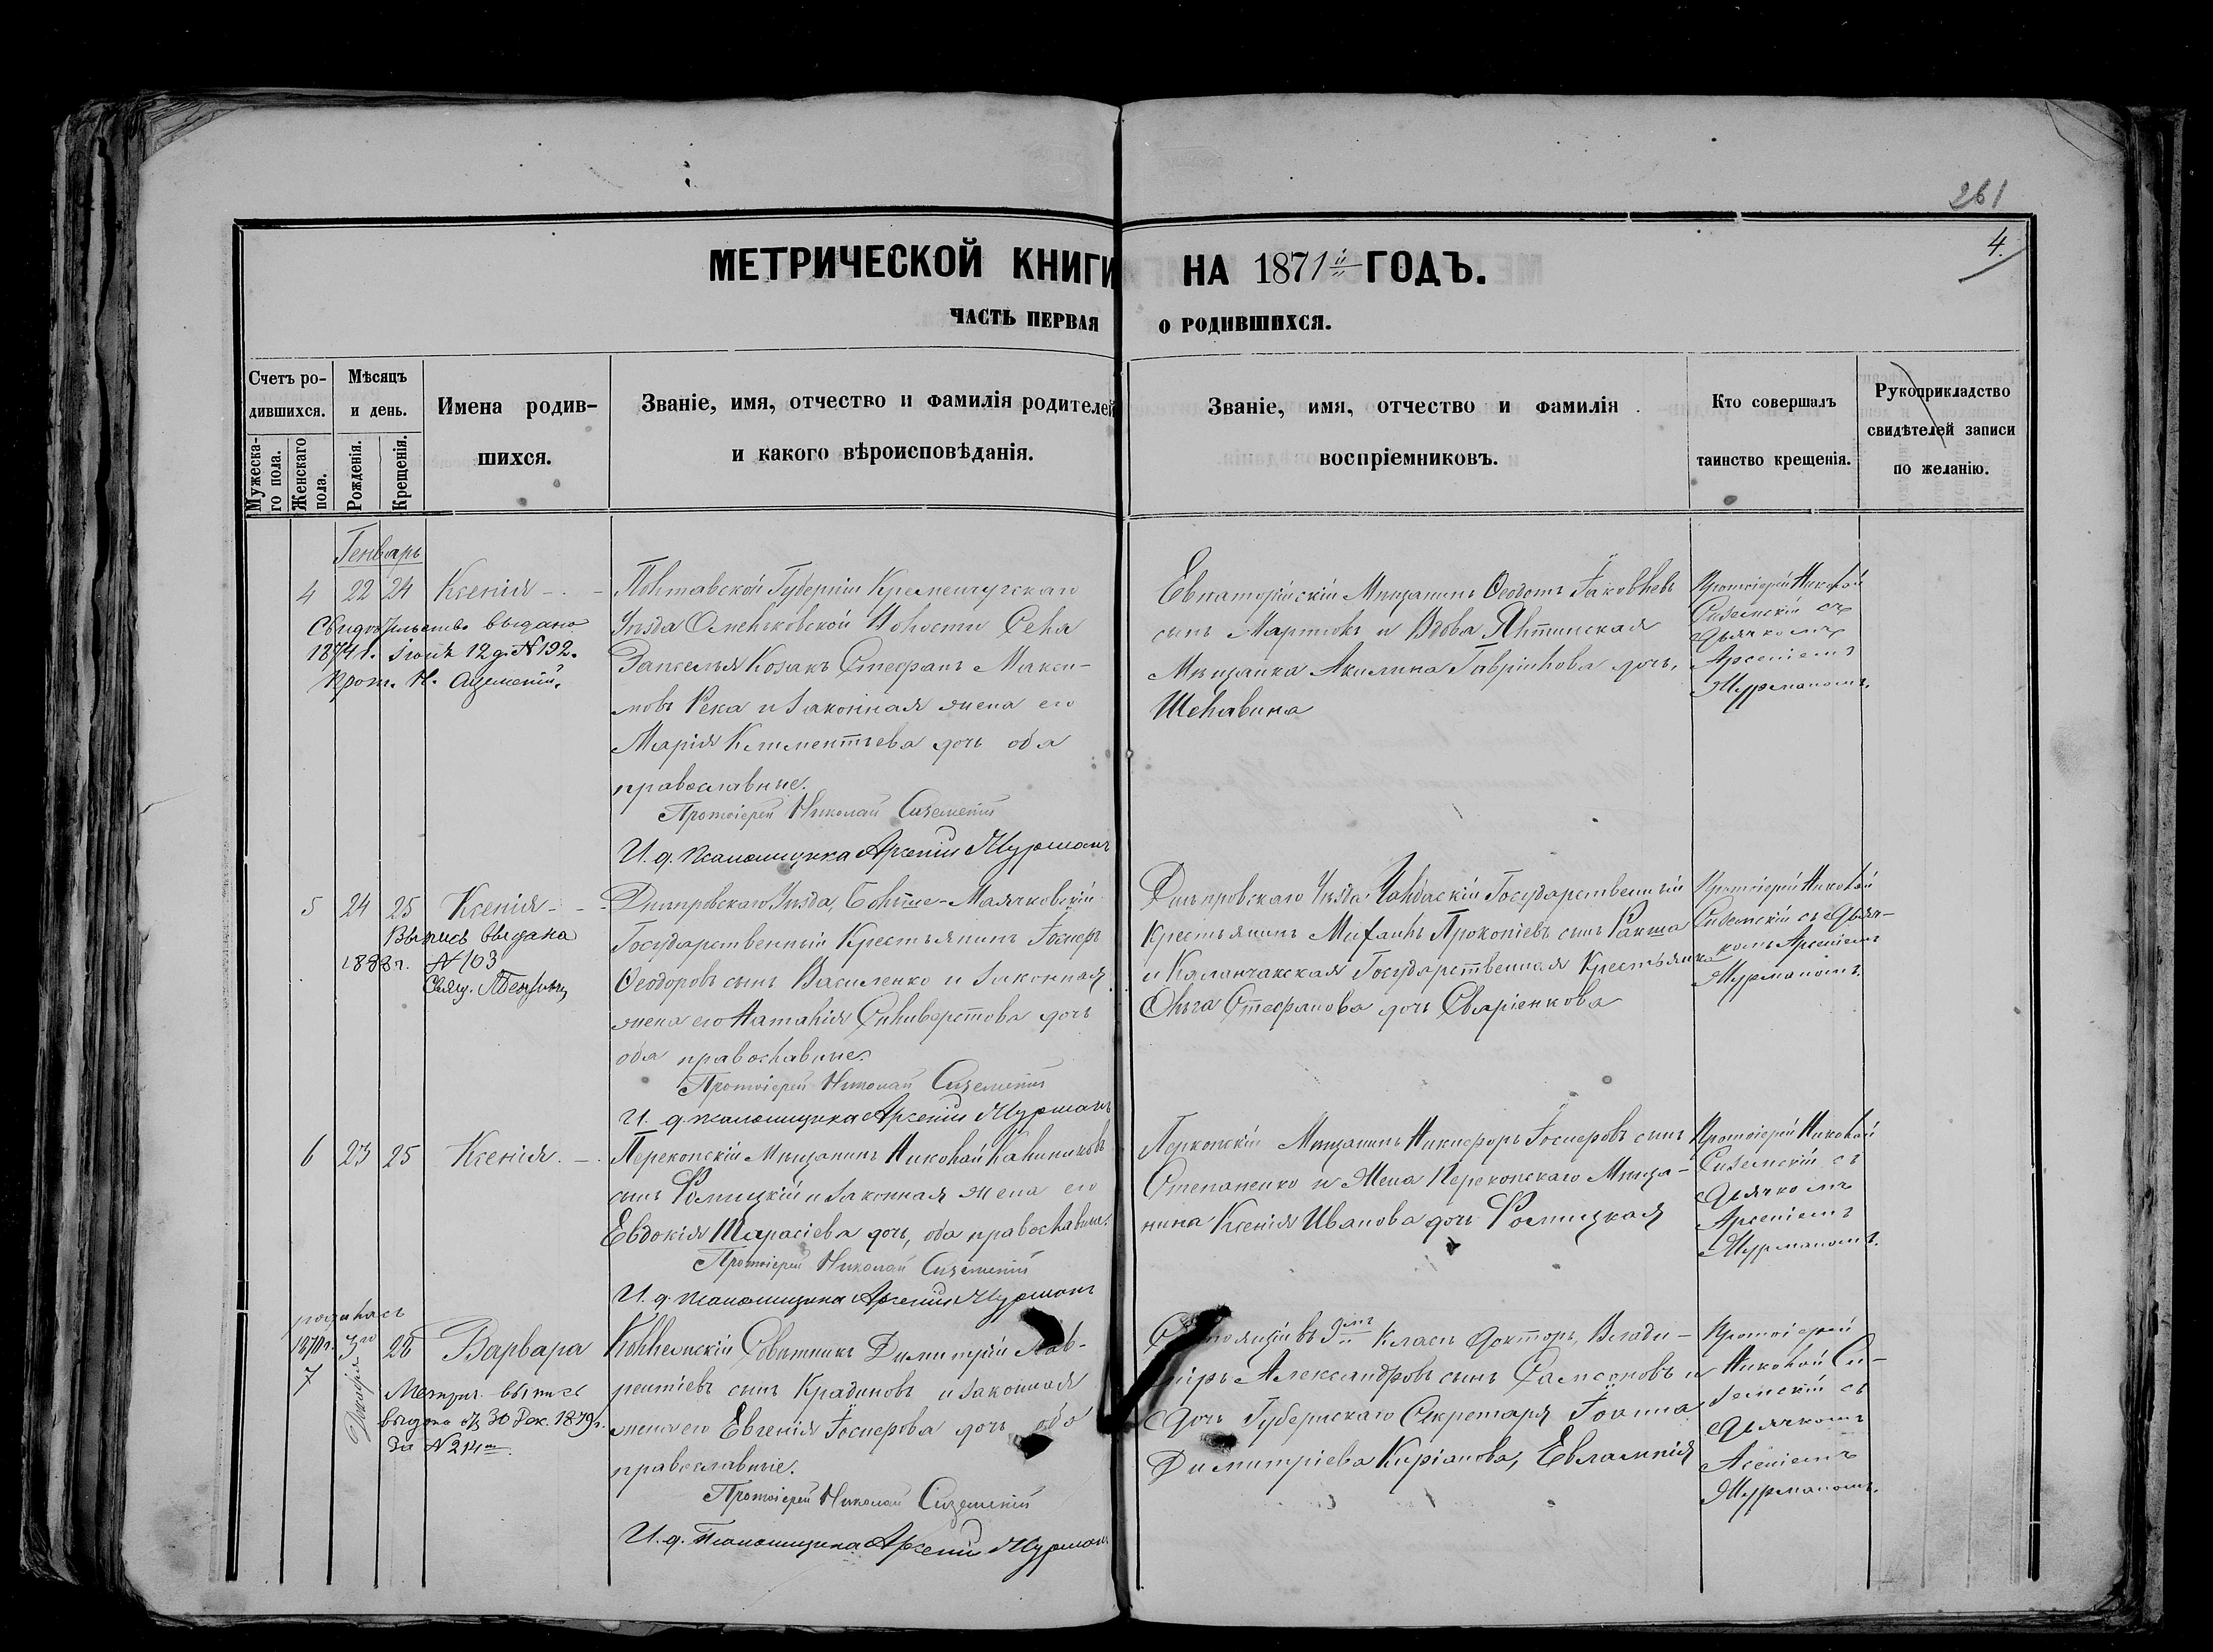 261
4.
МЕТРИЧЕСКОЙ КНИГИ НА 1871й ГОДЪ.
ЧАСТЬ ПЕРВАЯ О РОДИВШИХСЯ.
Счетъ ро-
дившихся.
Мужеска-
го пола.
Женскаго
пола.
Мѣсяцъ
и день.
Рожденія.
Крещенія.
Имена родив-
шихся.
Званіе, имя, отчество и фамилія родителей
и какого вѣроисповѣданія.
Званіе, имя, отчество и фамилія
воспріемниковъ.
Кто совершалъ
таинство крещенія.
Рукоприкладство
свидѣтелей записи
по желанію.
Генварь
4 22 24 Ксенія
Свидѣтельство выдано
1874 г. іюня 12 д. № 192.
Прот. Н.
Полтавской Губерніи Кременчугскаго
Уѣзда Омельковской Волости Села
Козакъ Стефанъ Макси-
мовъ Река и законная жена его
Марія Климентьева дочь оба
православные.
Протоіерей Николай Сиземскій
И. д. псаломщика Арсеній Мурманъ
Евпаторійскій Мѣщанинъ Ѳеодотъ Іаковлевъ
сынъ Мартовъ и Вдова Ялтинская
Мѣщанка Акилина Гавріилова дочь,
Шелавина
Протоіерей Николай
Сиземскій съ
дьячкомъ
Арсеніемъ
Мурманомъ.
5 24 25 Ксенія
Выпись выдана
1888 г. № 103
Свящ.
Днѣпровскаго Уѣзда, Больше-Маячковскій
Государственный Крестьянинъ Іосифъ
Ѳеодоровъ сынъ Василенко и законная
жена его Наталія Сильверстова дочь
оба православные.
Протоіерей Николай Сиземскій
И. д. псаломщика Арсеній Мурманъ
Днѣпровскаго Уѣзда Чалбаскій Государственный
Крестьянинъ Михаилъ Прокопіевъ сынъ Ракша
и Каланчакская Государственная Крестьянка
Ольга Стефанова дочь
Протоіерей Николай
Сиземскій съ дьяч-
комъ Арсеніемъ
Мурманомъ.
6 23 25 Ксенія
Перекопскій Мѣщанинъ Николай Калиниковъ
сынъ Ромицкій и законная жена его
Евдокія Тарасіева дочь, оба православные.
Протоіерей Николай Сиземскій
И. д. псаломщика Арсеній Мурманъ
Перкопскій Мѣщанинъ Никифоръ Іосифовъ сынъ
Степаненко и Жена Перекопскаго Мѣща-
нина Ксенія Иванова дочь Ромицкая
Протоіерей Николай
Сиземскій съ
дьячкомъ
Арсеніемъ
Мурманомъ.
родилась
1870 г. 3го 28 Варвара
7
Декабря
Метрич. выпись
выдана 30 Дек. 1879 г.
за № 214
Коллежскій Совѣтникъ Димитрій Лав-
рентіевъ сынъ Крадиновъ и законная
жена его Евгенія Іосифова дочь оба
православные.
Протоіерей Николай Сиземскій
И. д. Псаломщика Арсеній Мурманъ
въ 9мъ класѣ докторъ, Влади-
міръ Александровъ сынъ Самсоновъ и
дочь Губернскаго Секретаря Іоанна
Димитріева Киріанова, Евлампія
Протоіерей
Николай Си-
земскій съ
дьячкомъ
Асеніемъ
Мурманомъ.